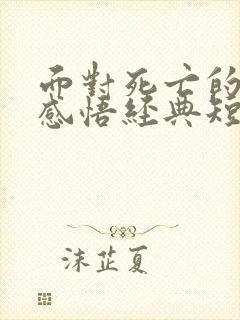 面對死亡的
感悟經典短
沫芷夏